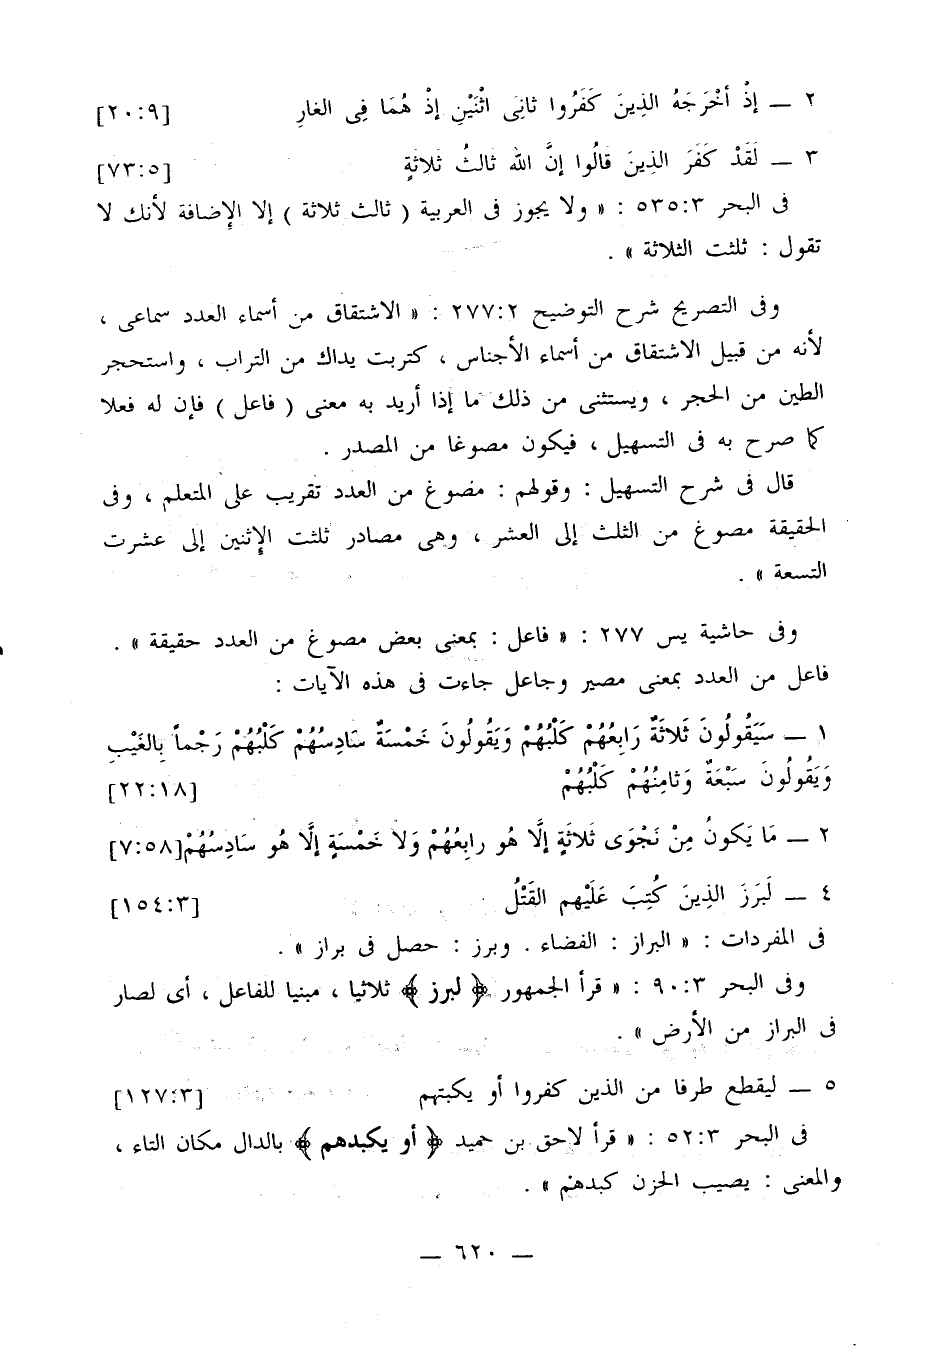 ٢ — إِذْ أَخْرَجَهُ الذِينَ كَفَرُوا ثانِيَ اثْنَيْنِ إِذْ هُمَا فِى الغارِ [٢٠:٩]
٣ — لَقَدْ كَفَرَ الذِينَ قالُوا إنَّ الله ثالثُ ثَلاثةٍ [٧٣:٥]
فى البحر ٥٣٥:٣ : « ولا يجوز فى العربية ( ثالث ثلاثة ) إلا الإضافة لأنك لا
تقول : ثلثت الثلاثة » .
وفى التصريح شرح التوضيح ٢٧٧:٢ : « الاشتقاق من أسماء العدد سماعى ،
لأنه من قبيل الاشتقاق من أسماء الأجناس ، كتربت يداك من التراب ، واستحجر
الطين من الحجر ، ويستثنى من ذلك ما إذا أريد به معنى ( فاعل ) فإن له فعلا
كما صرح به فى التسهيل ، فيكون مصوغا من المصدر .
قال فى شرح التسهيل : وقولهم : مصوغ من العدد تقريب على المتعلم ، وفى
الحقيقة مصوغ من الثلث إلى العشر ، وهى مصادر ثلثت الإثنين إلى عشرت
التسعة » .
وفى حاشية يس ٢٧٧ : « فاعل : بمعنى بعض مصوغ من العدد حقيقة » .
فاعل من العدد بمعنى مصير وجاعل جاءت فى هذه الآيات :
١ — سَيَقُولُونَ ثَلاثَةٌ رَابِعُهُمْ كَلْبُهُمْ وَيَقُولُونَ خَمْسَةٌ سَادِسُهُمْ كَلْبُهُمْ رَجْماً بِالغَيْبِ
وَيَقُولُونَ سَبْعَةٌ وَثامِنُهُمْ كَلْبُهُمْ [٢٢:١٨]
٢ — مَا يَكونُ مِنْ نَجْوَى ثَلاثَةٍ إلَّا هُو رابِعُهُمْ وَلَا خَمْسَةٍ إلَّا هُو سَادِسُهُمْ [٧:٥٨]
٤ — لَبَرَزَ الذِينَ كُتِبَ عَلَيْهم القَتْلُ [١٥٤:٣]
فى المفردات : « البراز : الفضاء . وبرز : حصل فى براز » .
وفى البحر ٩٠:٣ : « قرأ الجمهور ﴿ لبرز ﴾ ثلاثيا ، مبنيا للفاعل ، أى لصار
فى البراز من الأرض » .
٥ — ليقطع طرفا من الذين كفروا أو يكبتهم [١٢٧:٣]
فى البحر ٥٢:٣ : « قرأ لاحق بن حميد ﴿ أو يكبدهم ﴾ بالدال مكان التاء ،
والمعنى : يصيب الحزن كبدهم » .
— ٦٢٠ —